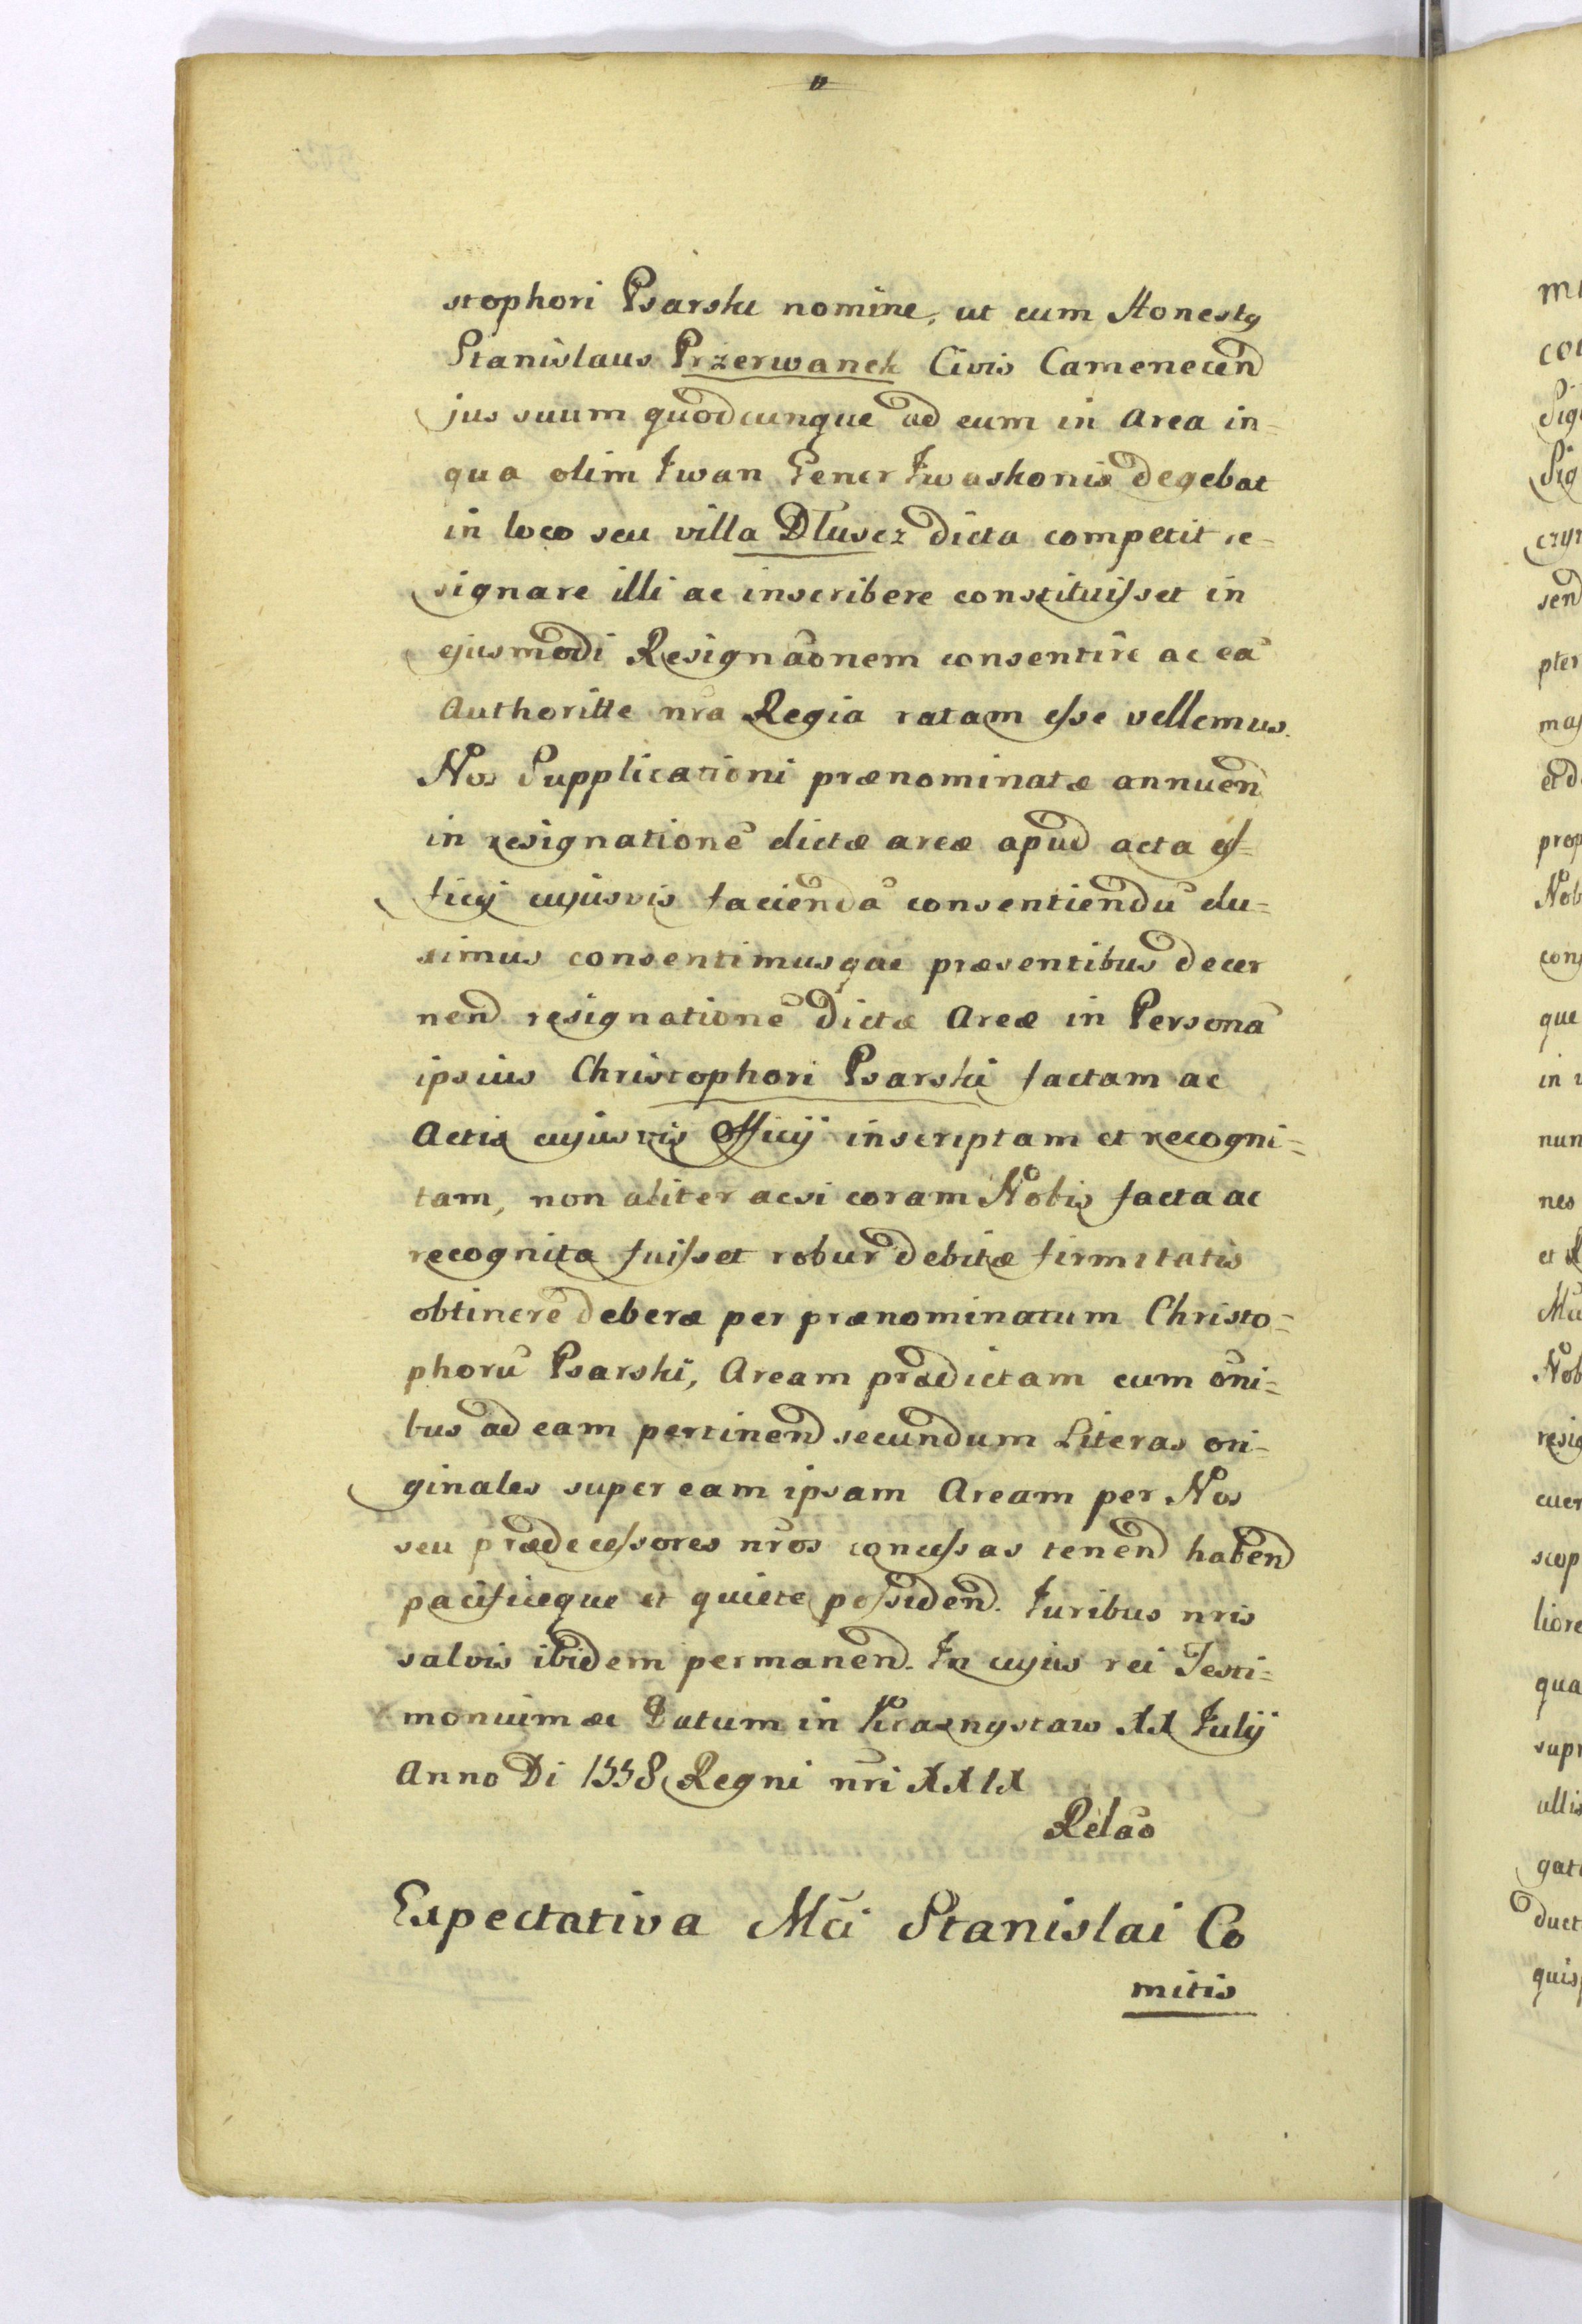 stophori Psarski nomine, ut cum Honestq
Stanislaus Przerwanek Civis Camenecen̄
jus suum quodcunque ad eum in Area in=
qua olim Iwan Gener Iwaskonis degebat
in loco seu villa Dlusez dicta competit re=
signare illi ac inscribere constituisset in
ejusmodi Resignāonem consentire ac eā
Authoritte nr̄a Regia ratam esse vellemus.
Nos Supplicationi prænominatæ annuen̄
in resignationē dictæ areæ apud acta of=
ficij cujusvis faciendā consentiendū du=
ximus consentimusque præsentibus decer
nen̄ resignationē dictæ Areæ in Personā
ipsius Christophori Psarski factam ac
Actis cujusvis Officij inscriptam et recogni=
tam, non aliter acsi coram Nobis facta ac
recognita fuisset robur debitæ firmitatis
obtinere deberæ per prænominatum Christo=
phorū Psarski, Aream prædictam cum ōni=
bus ad eam pertinen̄ secundum Literas ori=
ginales super eam ipsam Aream per Nos
seu prædecessores nr̄os concessas tenen̄ haben̄
pacificeque et quiete possiden̄. Iuribus nris
salvis ibidem permanen̄. In cujus rei Testi=
monium ac Datum in Krasnystaw XX Iulij
Anno Di 1558 Regni nr̄i XXIX
Relāo
Expectativa Mci Stanislai Co
mitis